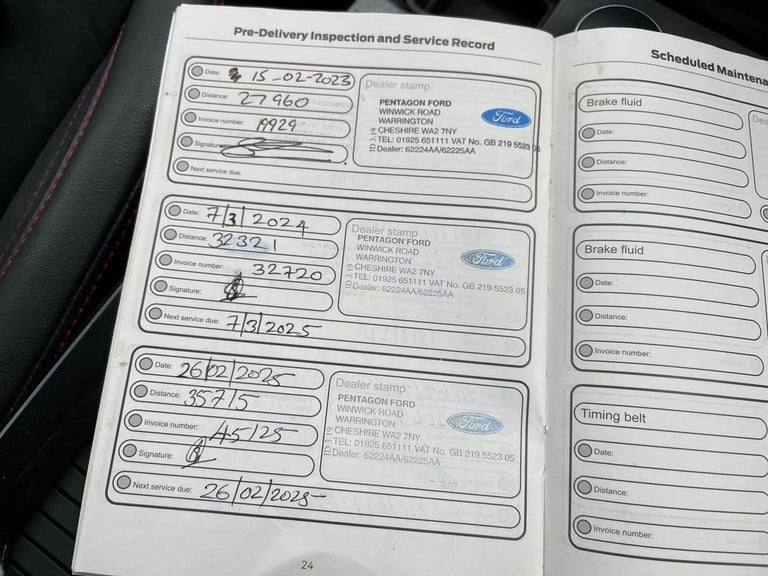 Pre-Delivery Inspection and Service Record
Date: 15-02-2023
Distance: 27960
Invoice number: 19929
Signature:
Next service due:
Dealer stamp
PENTAGON FORD
WINWICK ROAD
WARRINGTON
CHESHIRE WA2 7NY
TEL: 01925 651111 VAT No. GB 219 5523 05
Dealer: 62224AA/62225AA
ID 3.19
Ford
Date: 7/3/2024
Distance: 32321
Invoice number: 32720
Signature:
Next service due: 7/3/2025
Dealer stamp
PENTAGON FORD
WINWICK ROAD
WARRINGTON
CHESHIRE WA2 7NY
TEL: 01925 651111 VAT No. GB 219 5523 05
Dealer: 62224AA/62225AA
ID 3.19
Ford
Date: 26/02/2025
Distance: 35715
Invoice number: 45125
Signature:
Next service due: 26/02/2025
Dealer stamp
PENTAGON FORD
WINWICK ROAD
WARRINGTON
CHESHIRE WA2 7NY
TEL: 01925 651111 VAT No. GB 219 5523 05
Dealer: 62224AA/62225AA
ID 3.19
Ford
24
Scheduled Maintena
Brake fluid
Date:
Distance:
Invoice number:
Dea
Brake fluid
Date:
Distance:
Invoice number:
Timing belt
Date:
Distance:
Invoice number: